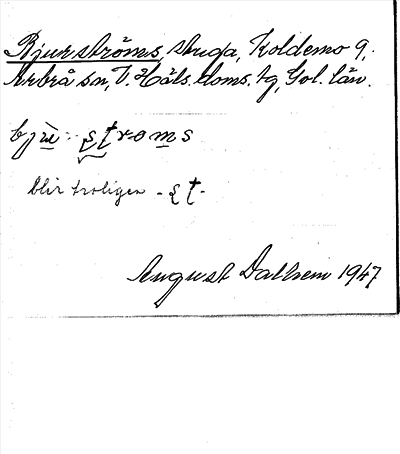 Bjurströms, stuga, Koldemo 9,
Arbrå sn, V. Häls. doms. tg, Gvl. län.
bjɯ̄: ʂʈroms
blir troligen - ʂʈ -
August Dalhem 1947